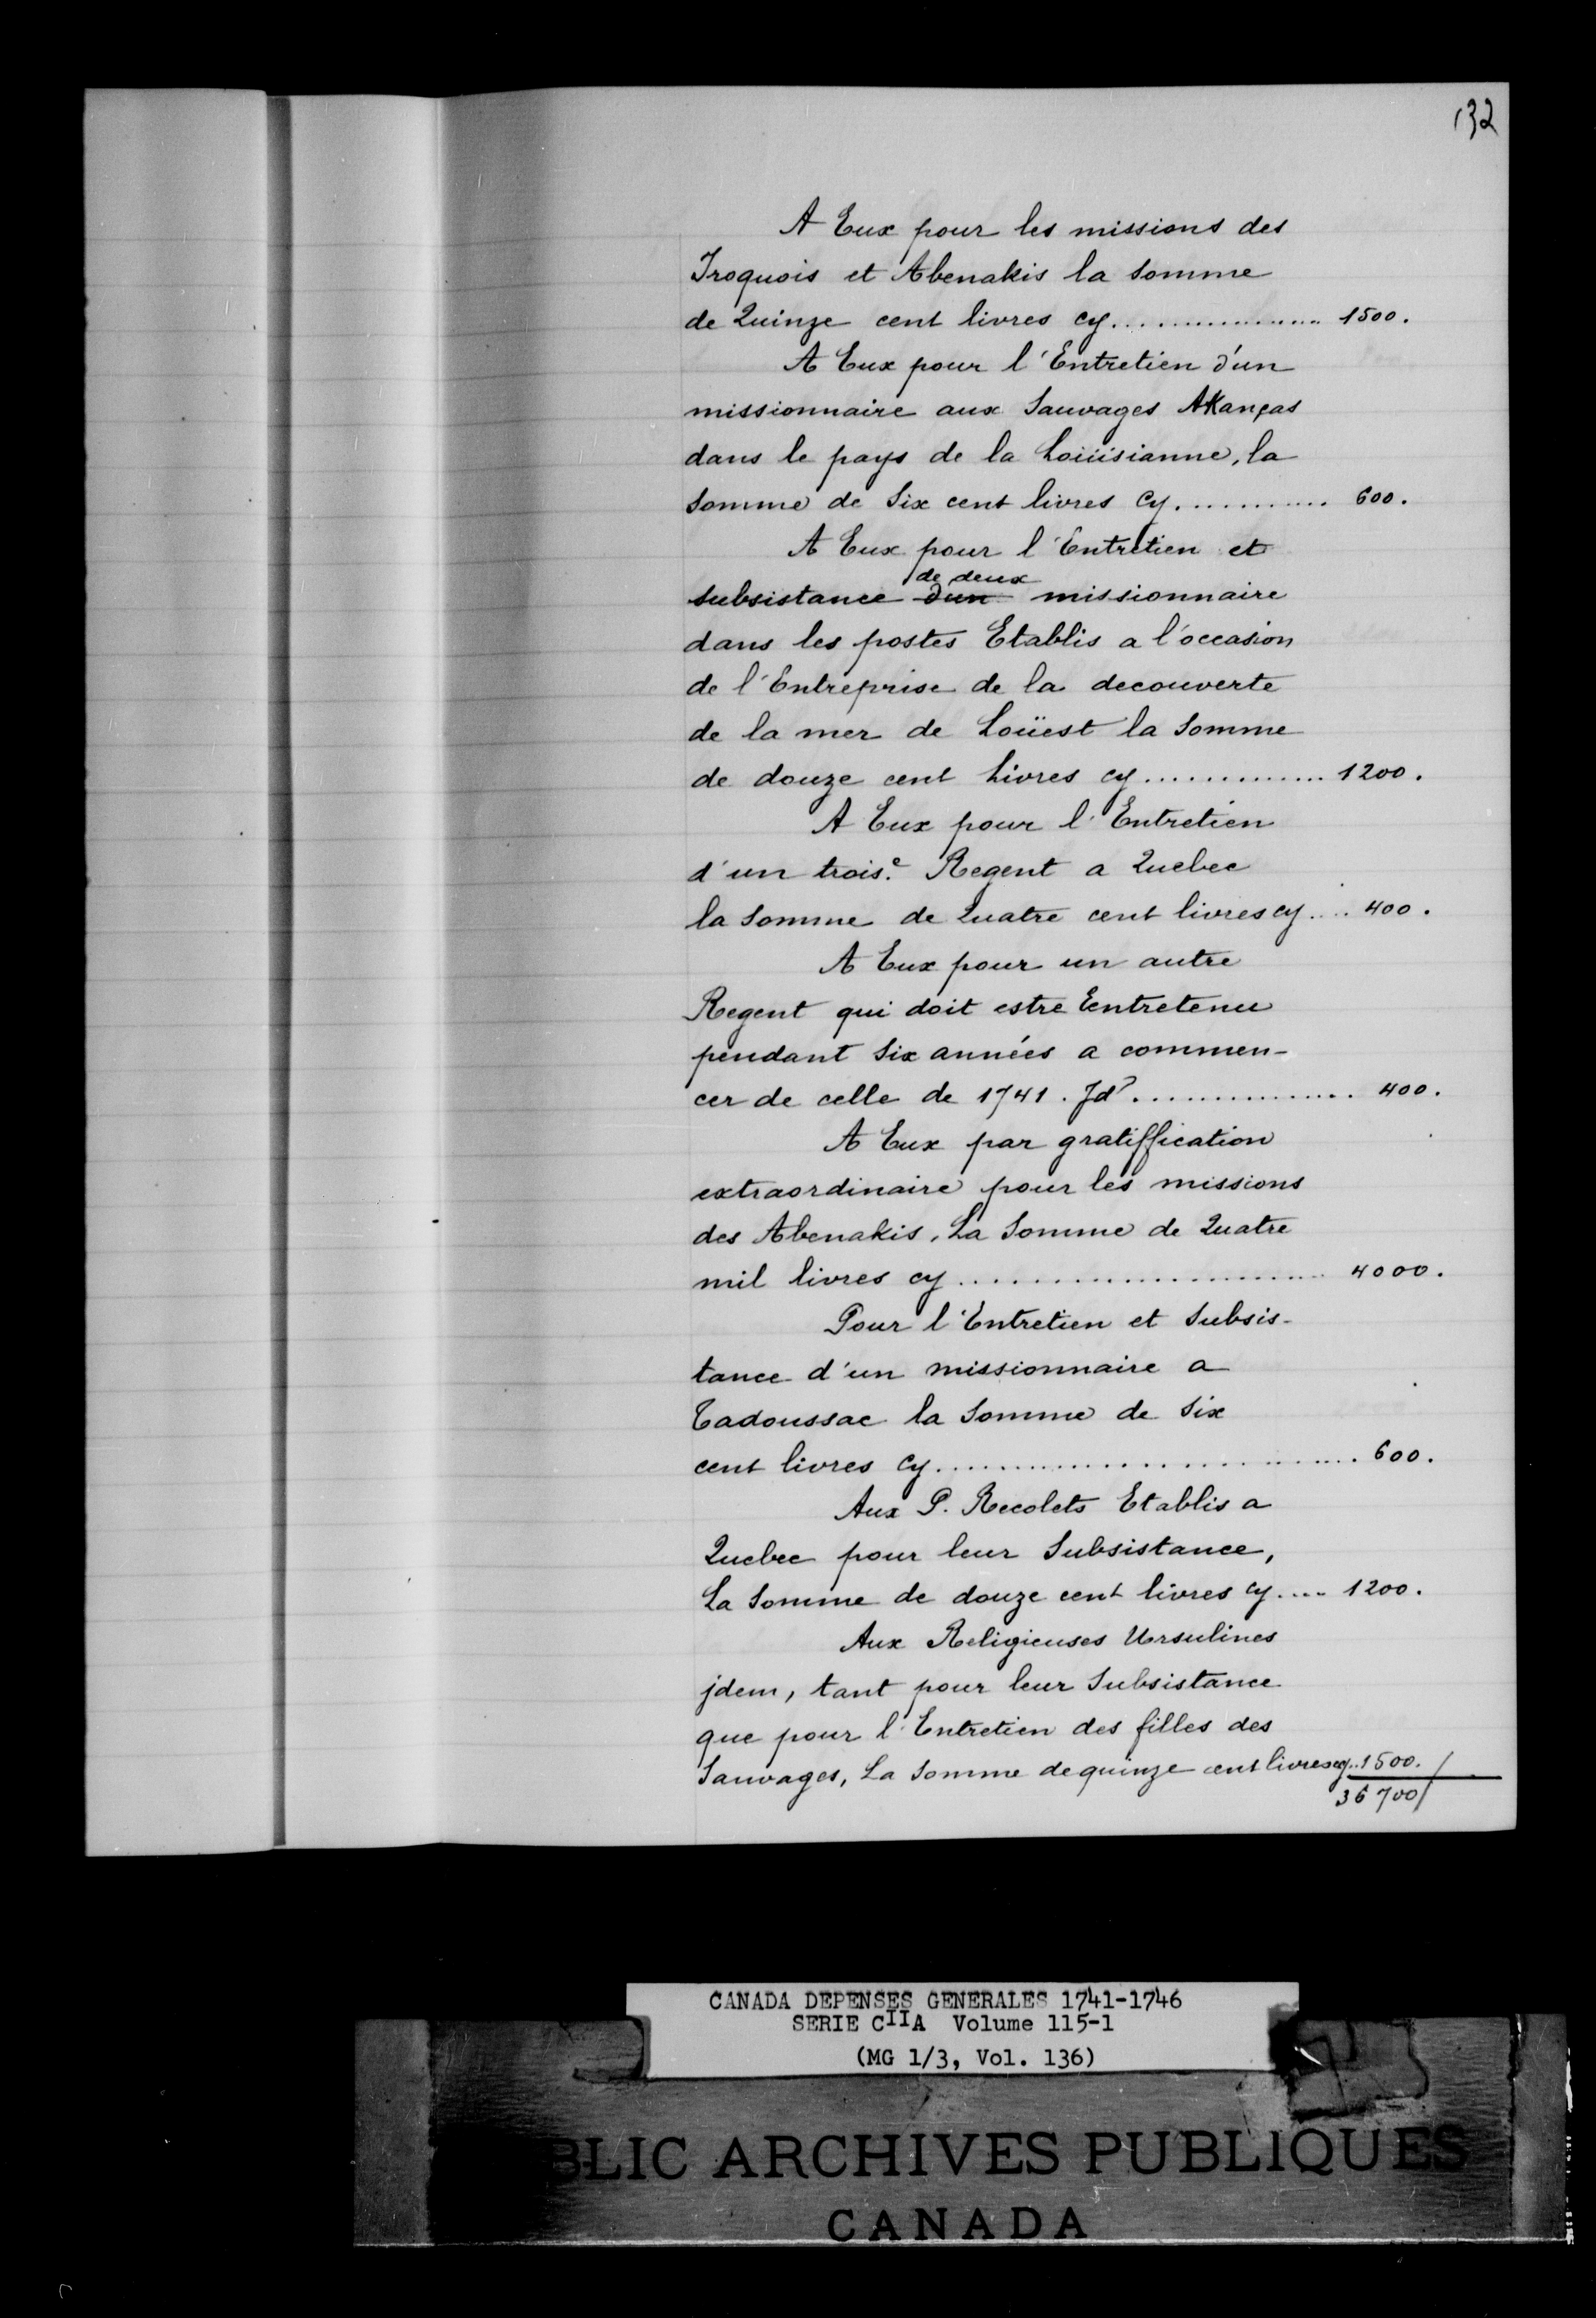 132
A Eux pour les missions des
Iroquois et Abenakis la somme
de Quinze cent livres cy.................. 1500.
A Eux pour l'Entretien d'un
missionnaire aux Sauvages AKanças
dans le pays de la Loüisianne, la
Somme de Six cent livres Cy............ 600.
A Eux pour l'Entretien et
de deux
subsistance d'un missionnaire
dans les postes Etablis a l'occasion
de l'Entreprise de la decouverte
de la mer de Loüest la Somme
de douze cent Livres cy.............. 1200.
A Eux pour l'Entretien
d'un trois.e Regent a Quebec
la Somme de Quatre cent livres cy.... 400.
A Eux pour un autre
Regent qui doit estre Entretenu
pendant Six années a commen-
cer de celle de 1741. Jd?................ 400.
A Eux par gratiffication
extraordinaire pour les missions
des Abenakis, La Somme de Quatre
mil livres cy........................ 4000.
Pour l'Entretien et Subsis-
tance d'un missionnaire a
Tadoussac la Somme de Six
cent livres Cy............................ 600.
Aux P. Recolets Etablis a
Quebec pour leur Subsistance,
La Somme de douze cent livres cy.... 1200.
Aux Religieuses Ursulines
jdem, tant pour leur Subsistance
que pour l'Entretien des filles des
Sauvages, La Somme de quinze cent livres cy..1500./
36700/
CANADA DEPENSES GENERALES 1741-1746
SERIE CIIA Volume 115-1
(MG 1/3, Vol. 136)
BLIC ARCHIVES PUBLIQUES
CANADA